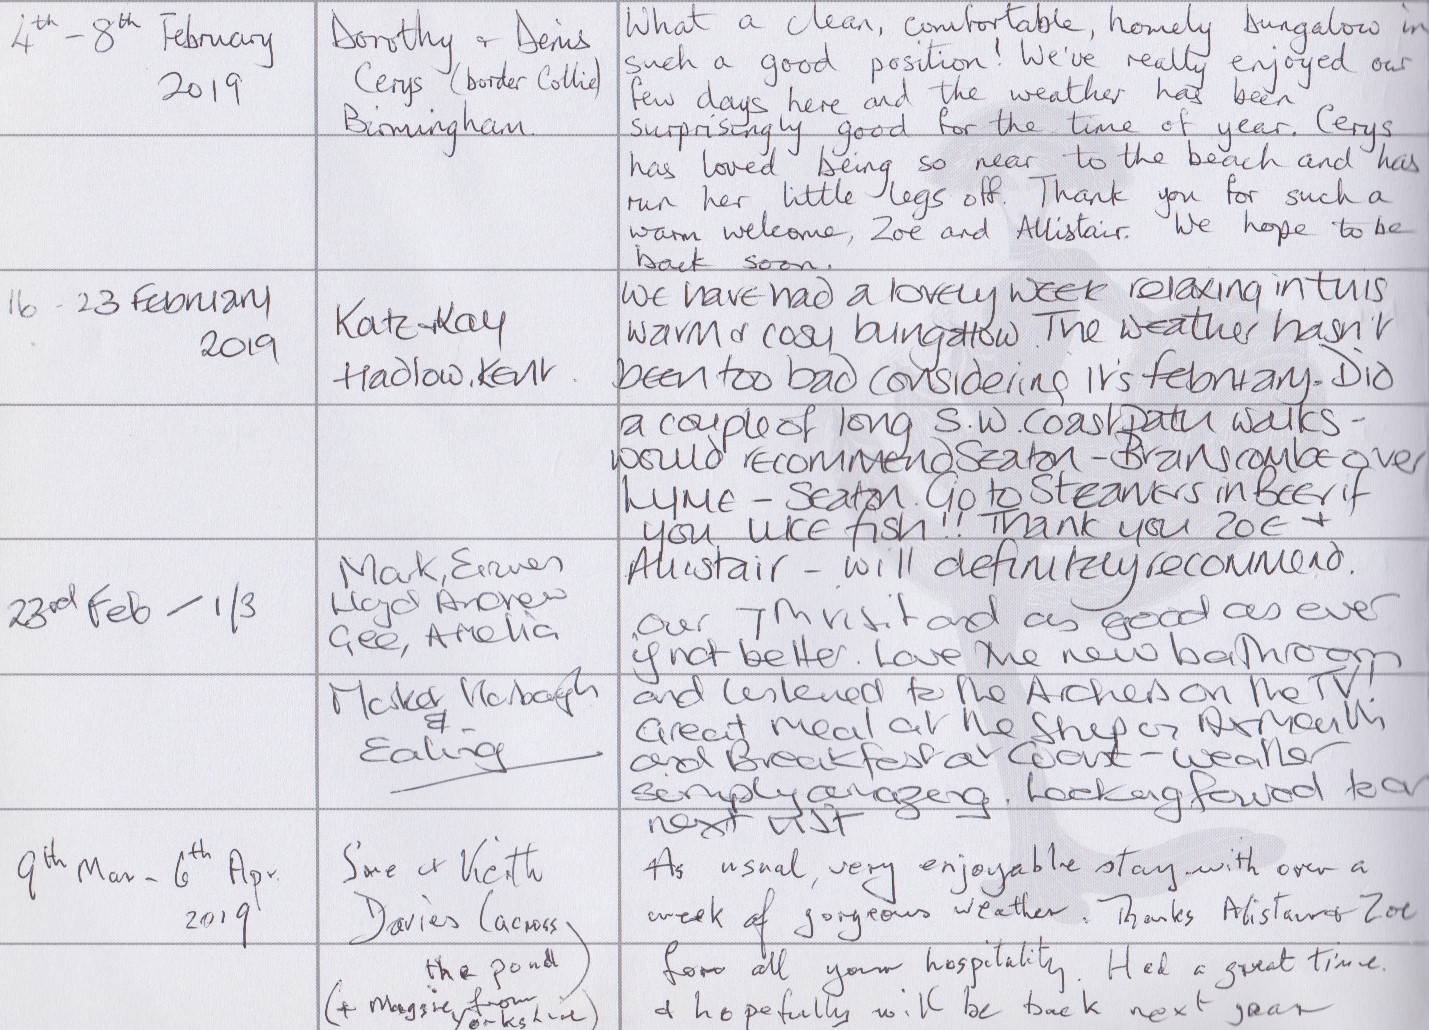 4th - 8th February
2019
Dorothy + Denis
Cerys (border Collie)
Birmingham.
What a clean, comfortable, homely bungalow in
such a good position! We've really enjoyed our
few days here and the weather has been
surprisingly good for the time of year. Cerys
has loved being so near to the beach and has
run her little legs off. Thank you for such a
warm welcome, Zoe and Allistair. We hope to be
back soon.
16 - 23 February
2019
Kate + Kay
Hadlow, Kent.
We have had a lovely week relaxing in this
warm & cosy bungalow. The weather hasn't
been too bad considering it's february. Did
a couple of long S.W. Coast Path walks -
would recommend Seaton - Branscombe over
Lyme - Seaton. Go to Steamers in Beer if
you like fish!! Thank you Zoe +
Allistair - will definitely recommend.
23rd Feb - 1/3
Mark,
Lloyd Andrew
Gee, Amelia
Market Harborough
&
Ealing
our 7th visit and as good as ever
if not better. Love the new bathroom
and listened to the Archers on the TV!
Great meal at the Ship in Axmouth
and Breakfast at Coast - weather
simply amazing. Looking forward to our
next visit
9th Mar - 6th Apr.
2019
Sue & Keith
Davies (across
the pond)
(+ Maggie from
Yorkshire)
As usual, very enjoyable stay with over a
week of gorgeous weather. Thanks Alistair & Zoe
for all your hospitality. Had a great time.
& hopefully will be back next year